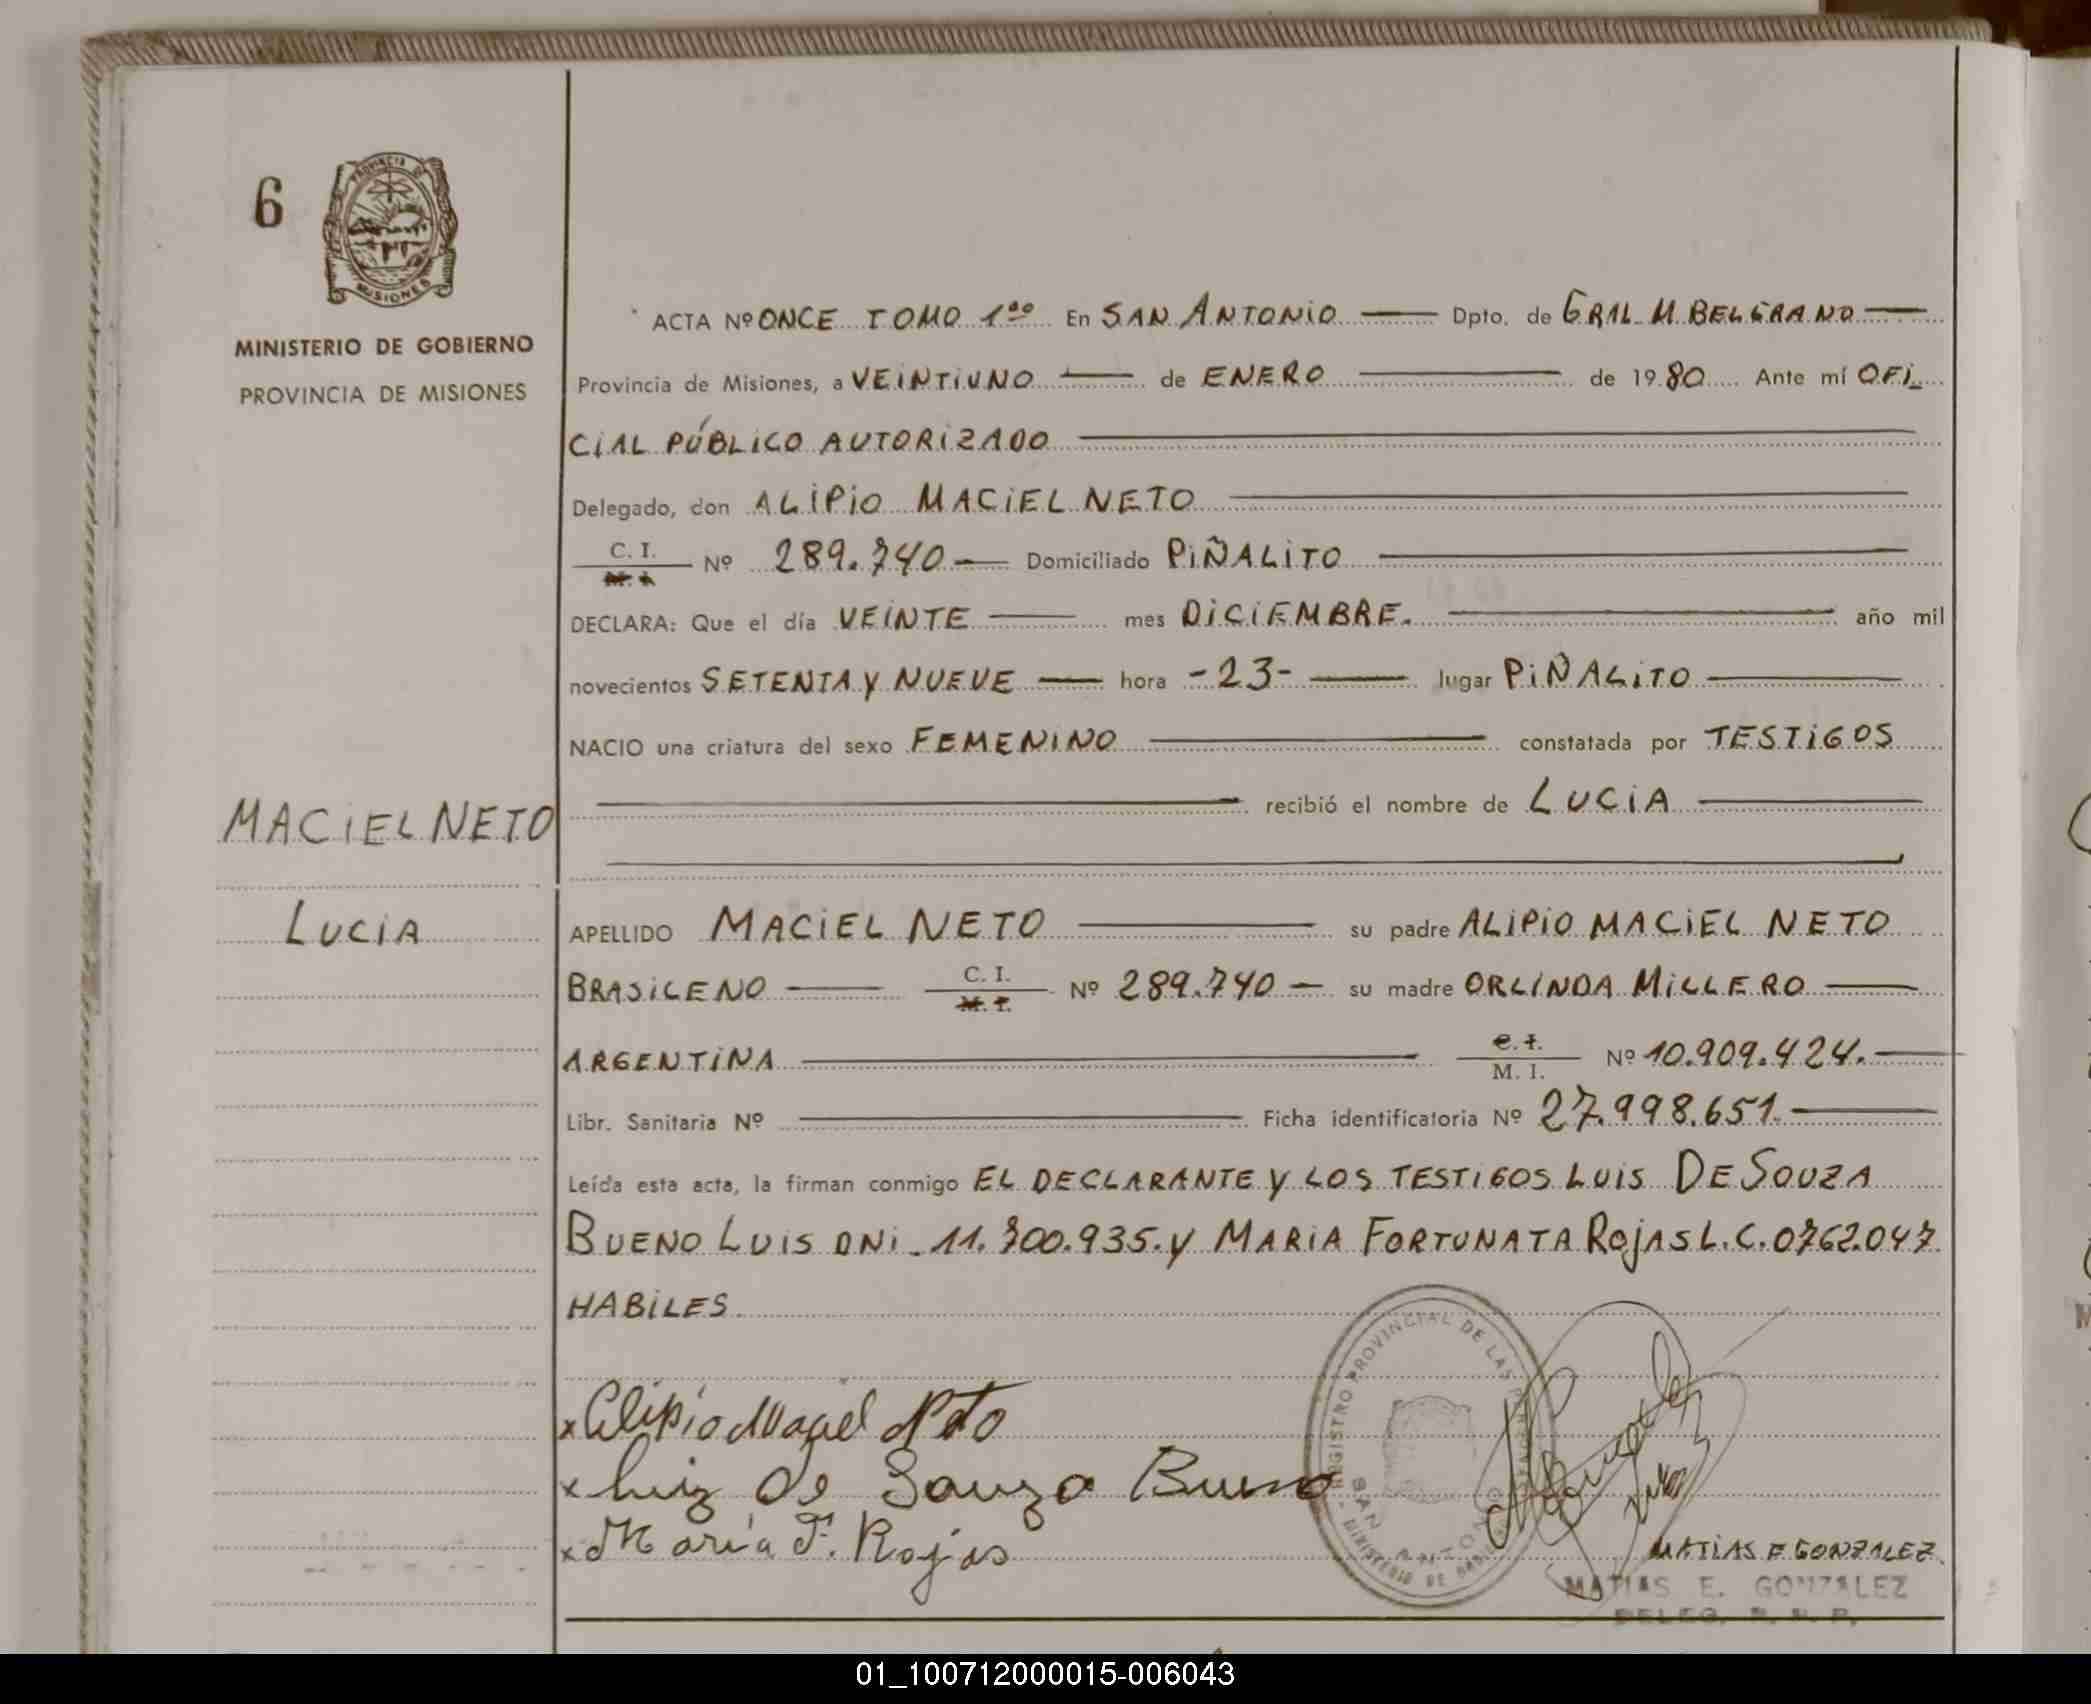 6
PROVINCIA DE
MISIONES
MINISTERIO DE GOBIERNO
PROVINCIA DE MISIONES
MACIEL NETO
LUCIA
ACTA Nº ONCE TOMO 1ºº En SAN ANTONIO Dpto. de GRAL M BELGRANO
Provincia de Misiones, a VEINTIUNO de ENERO de 1980 Ante mí OFI_
CIAL PÚBLICO AUTORIZADO
Delegado, don ALIPIO MACIEL NETO
C. I. M. I. Nº 289.740 Domiciliado PIÑALITO
DECLARA: Que el día VEINTE mes DICIEMBRE. año mil
novecientos SETENTA Y NUEVE hora -23- lugar PIÑALITO
NACIO una criatura del sexo FEMENINO constatada por TESTIGOS
recibió el nombre de LUCIA
APELLIDO MACIEL NETO su padre ALIPIO MACIEL NETO
BRASILENO C. I. M. I. Nº 289.740 su madre ORLINDA MILLERO
ARGENTINA C. I. M. I. Nº 10.909.424.
Libr. Sanitaria Nº Ficha identificatoria Nº 27.998.651.
Leída esta acta, la firman conmigo EL DECLARANTE Y LOS TESTIGOS LUIS DE SOUZA
BUENO LUIS DNI. 11.700.935. Y MARIA FORTUNATA ROJAS L.C. 0762.047
HABILES
x Alipio Maciel Neto
x Luiz de Souza Bueno
x María F. Rojas
REGISTRO PROVINCIAL DE LAS PERSONAS
SAN ANTONIO
MINISTERIO DE
MATIAS E GONZALEZ
MATIAS E. GONZALEZ
DELEG. R. P. P.
01_100712000015-006043